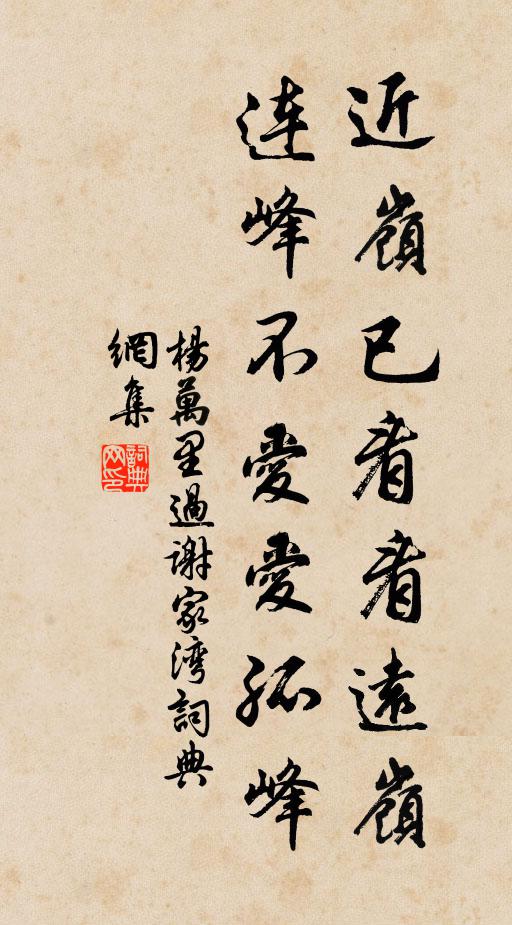 近嶺已看看遠嶺
連峰不愛愛孤峰
楊萬里過謝家湾詞典
網集
詞典
网印